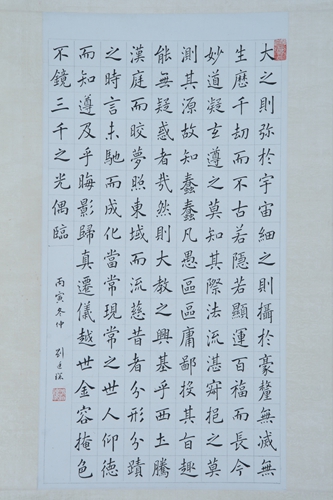 大之則弥於宇宙細之則攝於豪釐無滅無
生歷千劫而不古若隱若顯運百福而長今
妙道凝玄遵之莫知其際法流湛寂挹之莫
測其源故知蠢蠢凡愚區區庸鄙投其旨趣
能無疑惑者哉然則大教之興基乎西土騰
漢庭而皎夢照東域而流慈昔者分形分蹟
之時言未馳而成化當常現常之世人仰德
而知遵及乎晦影歸真遷儀越世金容掩色
不鏡三千之光偶臨
丙寅冬仲 劉